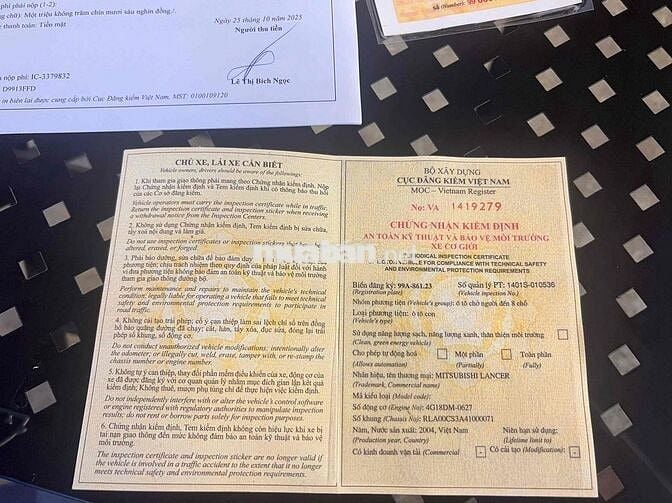 phí phải nộp (1-2):
chữ): Một triệu không trăm chín mươi sáu nghìn đồng./.
thanh toán: Tiền mặt
Ngày 25 tháng 10 năm 2025
Người thu tiền
Lê Thị Bích Ngọc
nộp phí: IC-3379832
D9913FFD
in biên lai được cung cấp bởi Cục Đăng kiểm Việt Nam, MST: 0100109120
Số (Number):
CHỦ XE, LÁI XE CẦN BIẾT
Vehicle owners, drivers should be aware of the followings:
1. Khi tham gia giao thông phải mang theo Chứng nhận kiểm định, Nộp
lại Chứng nhận kiểm định và Tem kiểm định khi có thông báo thu hồi
của các Cơ sở đăng kiểm.
Vehicle operators must carry the inspection certificate while in traffic.
Return the inspection certificate and inspection sticker when receiving
a withdrawal notice from the Inspection Centers.
2. Không sử dụng Chứng nhận kiểm định, Tem kiểm định bị sửa chữa,
tẩy xoá nội dung và làm giả.
Do not use inspection certificates or inspection stickers that have been
altered, erased, or forged.
3. Phải bảo dưỡng, sửa chữa để bảo đảm
phương tiện; chịu trách nhiệm theo quy định của pháp luật đối với hành
vi đưa phương tiện không bảo đảm an toàn kỹ thuật và bảo vệ môi trường
tham gia giao thông đường bộ.
Perform maintenance and repairs to maintain the vehicle's technical
condition; legally liable for operating a vehicle that fails to meet technical
safety and environmental protection requirements to participate in
road traffic.
4. Không cải tạo trái phép; cố ý can thiệp làm sai lệch chỉ số trên đồng
hồ báo quãng đường đã chạy; cắt, hàn, tẩy xóa, đục sửa, đóng lại trái
phép số khung, số động cơ.
Do not conduct unauthorized vehicle modifications; intentionally alter
the odometer; or illegally cut, weld, erase, tamper with, or re-stamp the
chassis number or engine number.
5. Không tự ý can thiệp, thay đổi phần mềm điều khiển của xe, động cơ của xe
đã được đăng ký với cơ quan quản lý nhằm mục đích gian lận kết quả
kiểm định; Không thuê, mượn phụ tùng chỉ để thực hiện việc kiểm định.
Do not independently interfere with or alter the vehicle's control software
or engine registered with regulatory authorities to manipulate inspection
results; do not rent or borrow parts solely for inspection purposes.
6. Chứng nhận kiểm định, Tem kiểm định không còn hiệu lực khi xe bị
tai nạn giao thông đến mức không đảm bảo an toàn kỹ thuật và bảo vệ
môi trường.
The inspection certificate and inspection sticker are no longer valid if
the vehicle is involved in a traffic accident to the extent that it no longer
meets technical safety and environmental protection requirements.
BỘ XÂY DỰNG
CỤC ĐĂNG KIỂM VIỆT NAM
MOC – Vietnam Register
No: VA 1419279
CHỨNG NHẬN KIỂM ĐỊNH
AN TOÀN KỸ THUẬT VÀ BẢO VỆ MÔI TRƯỜNG
XE CƠ GIỚI
PERIODICAL INSPECTION CERTIFICATE
FOR COMPLIANCE WITH TECHNICAL SAFETY
AND ENVIRONMENTAL PROTECTION REQUIREMENTS
Biển đăng ký: 99A-861.23 Số quản lý PT: 1401S-010536
(Registration plate) (Vehicle inspection No.)
Nhóm phương tiện (Vehicle's group): ô tô chở người đến 8 chỗ
Loại phương tiện: ô tô con
(Vehicle's type)
Sử dụng năng lượng sạch, năng lượng xanh, thân thiện môi trường
(Clean, green energy vehicle)
Cho phép tự động hoá Một phần Toàn phần
(Allows automation) (Partially) (Fully)
Nhãn hiệu, tên thương mại: MITSUBISHI LANCER
(Trademark, Commercial name)
Mã kiểu loại (Model code):
Số động cơ (Engine No): 4G18DM-0627
Số khung (Chassis No): RLA00CS3A41000071
Năm, Nước sản xuất: 2004, Việt Nam Niên hạn sử dụng:
(Production year, Country) (Lifetime limit to)
Có kinh doanh vận tải (Commercial - Có cải tạo (Modification): -
muaban.net